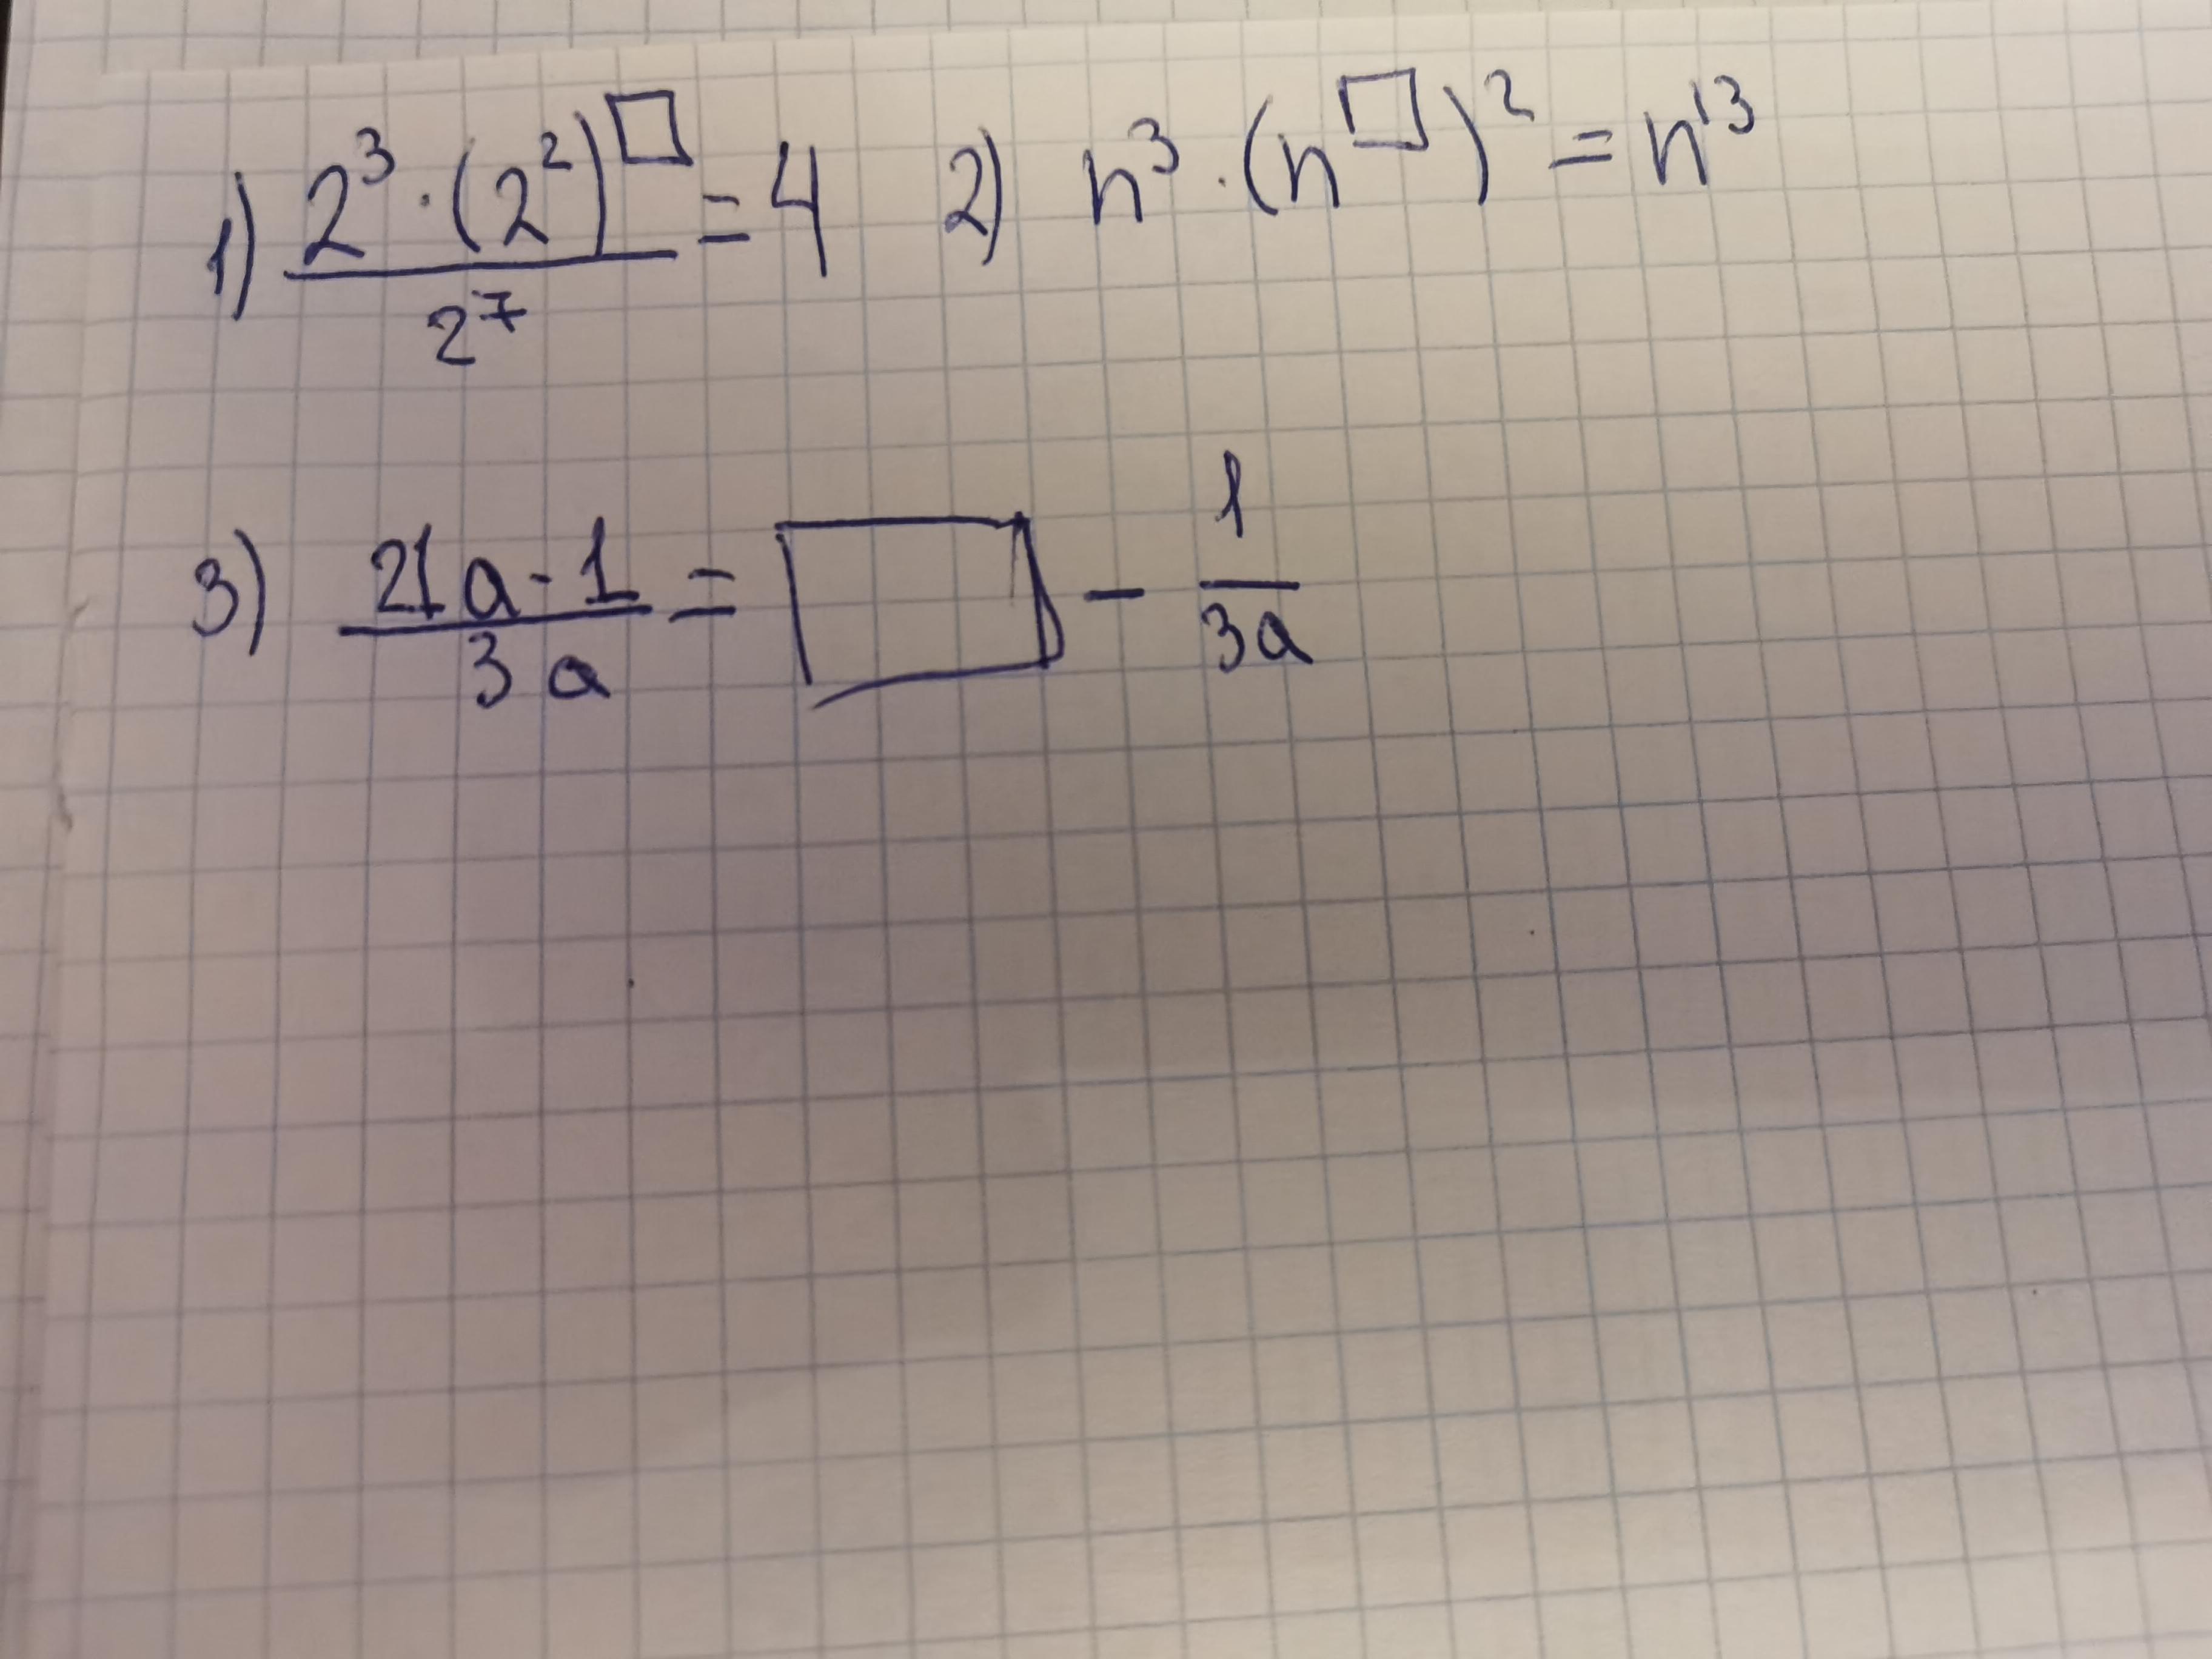 1) (2³ · (2²)^□)/2⁷ = 4 2) n³ · (n^□)² = n¹³
3) (21a - 1)/(3a) = □ - 1/(3a)